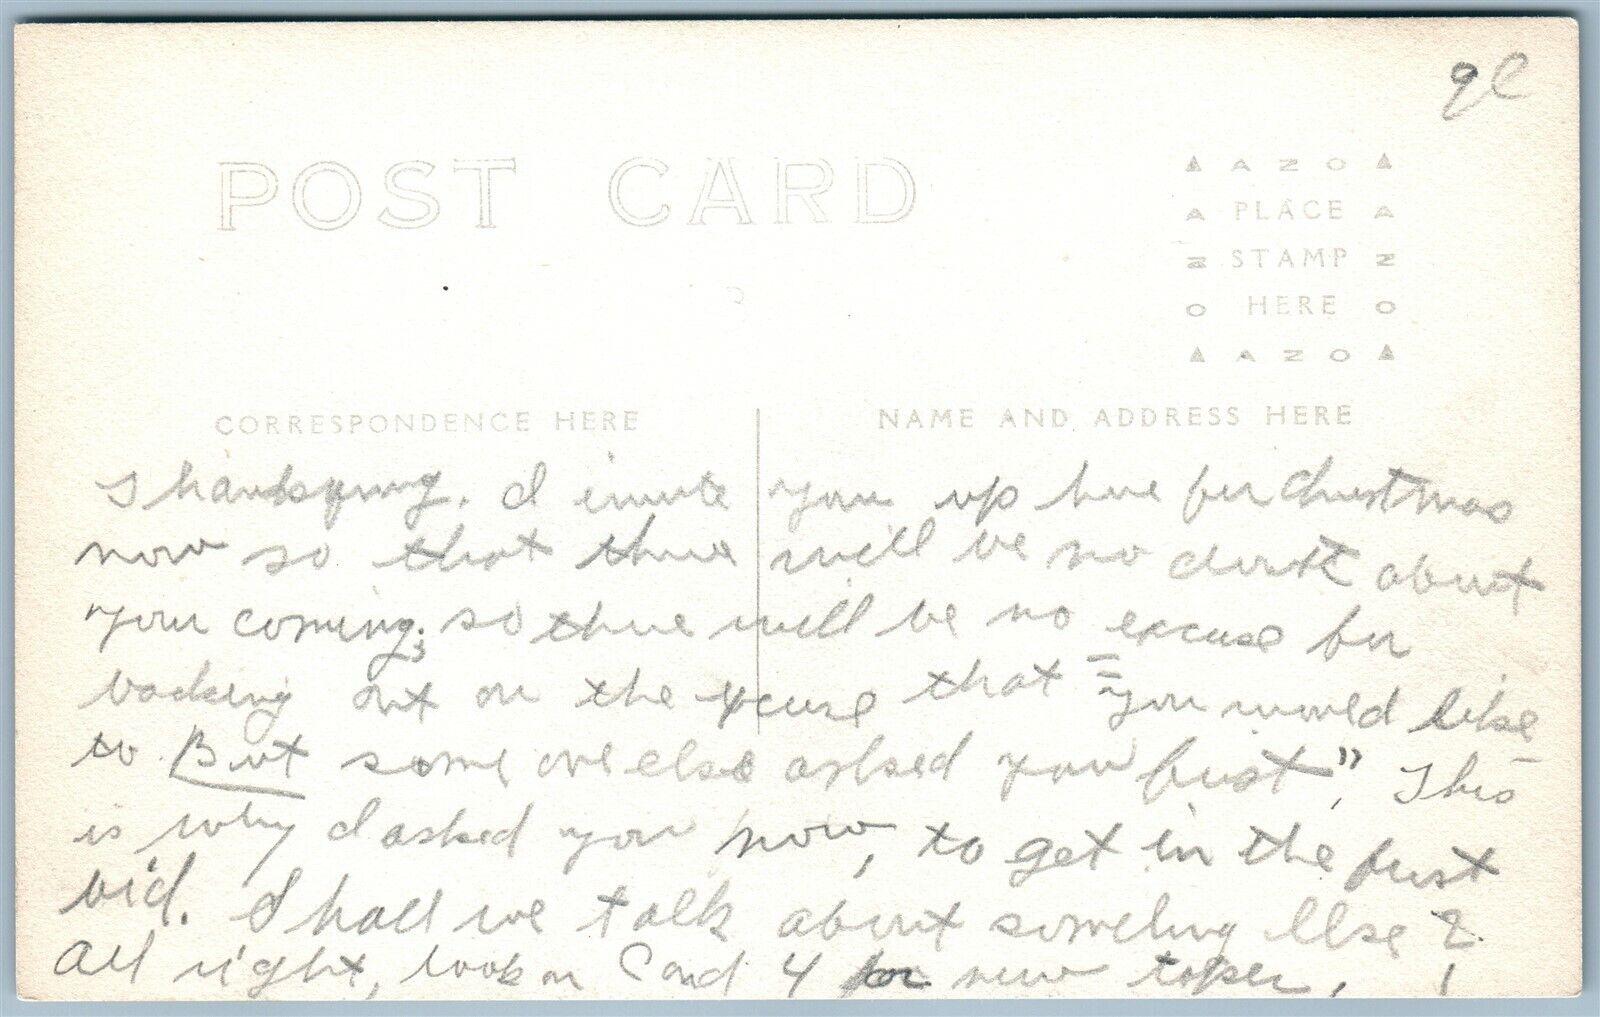 9C
POST CARD
AZO
PLACE
STAMP
HERE
AZO
CORRESPONDENCE HERE
NAME AND ADDRESS HERE
Thanksgiving. I invite you up here for Christmas
now so that there will be no doubt about
your coming; so there will be no excuse for
backing out on the excuse that "you would like
to But some one else asked you first". This
is why I asked you now, to get in the first
bid. Shall we talk about something else?
All right, look on Card 4 for new topic.